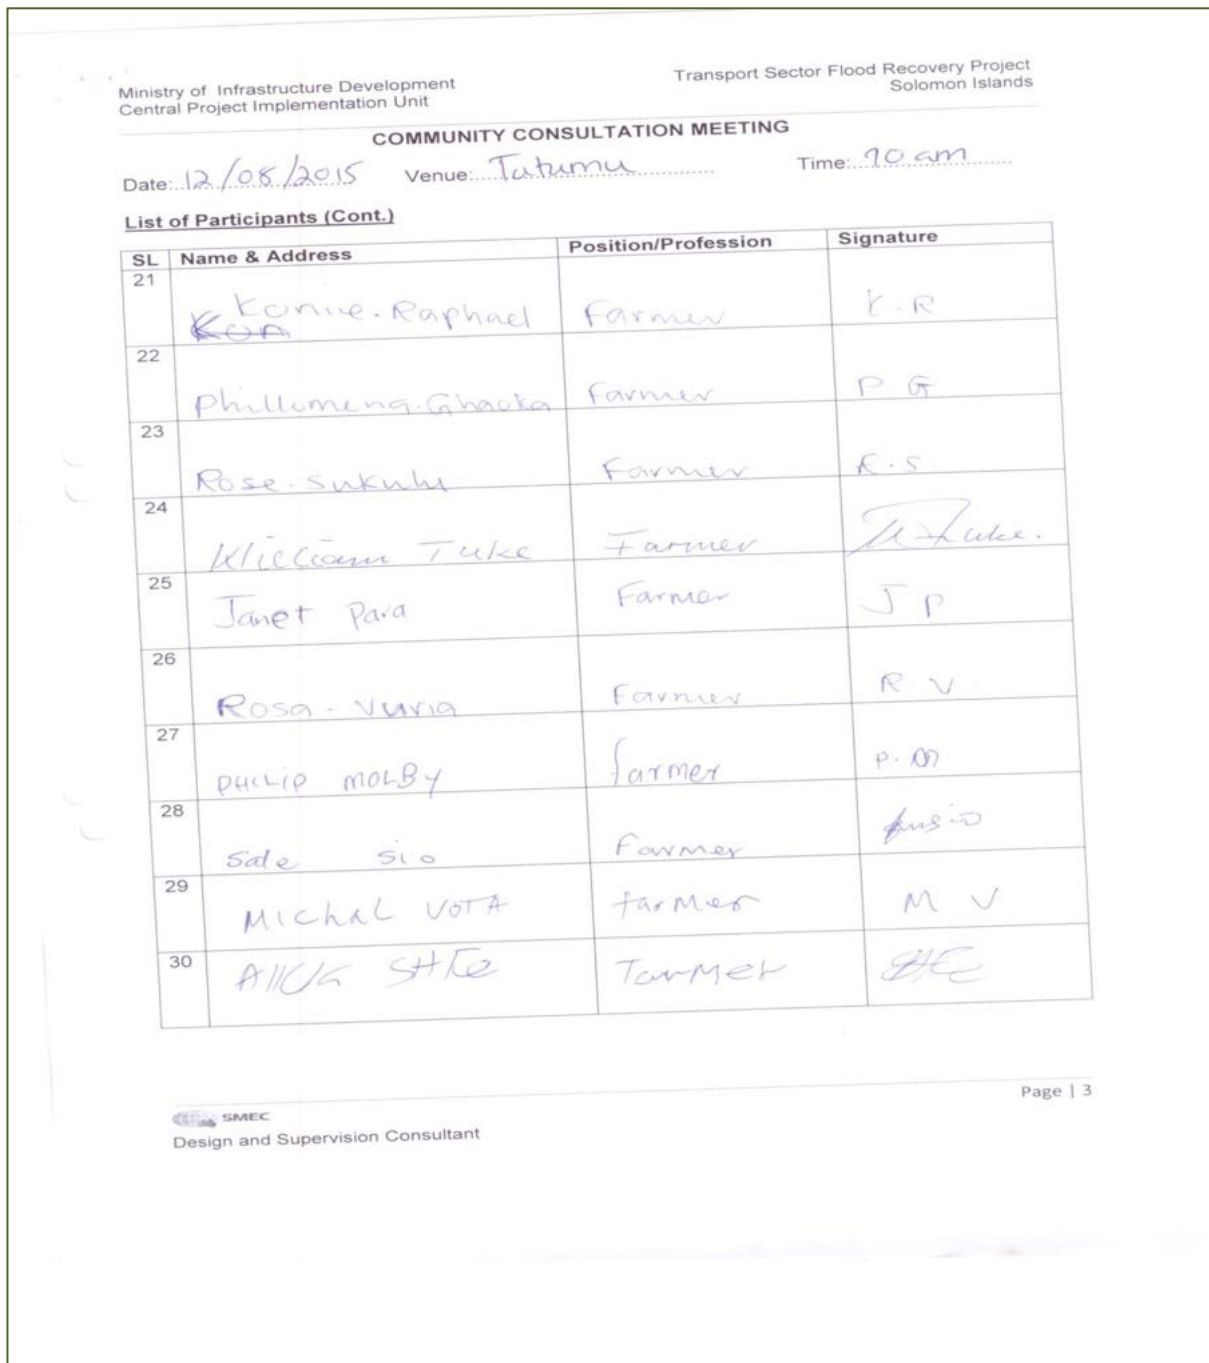 Ministry of Infrastructure Development
Central Project Implementation Unit
Transport Sector Flood Recovery Project
Solomon Islands
COMMUNITY CONSULTATION MEETING
Date: 12/08/2015 Venue: Tutumu Time: 10 am
List of Participants (Cont.)
SL Name & Address Position/Profession Signature
21 Konie. Raphael Farmer K.R
22 Phillomena. Ghaoka Farmer P G
23 Rose. Sukulu Farmer R.S.
24 William Tuke Farmer Tuke.
25 Janet Para Farmer J P
26 Rosa - Vuria Farmer R. V.
27 PHILIP MOLBY farmer P. M
28 Sale Sio Farmer
29 MIChaL VOTA farmer M V
30 Farmer
Page | 3
SMEC
Design and Supervision Consultant